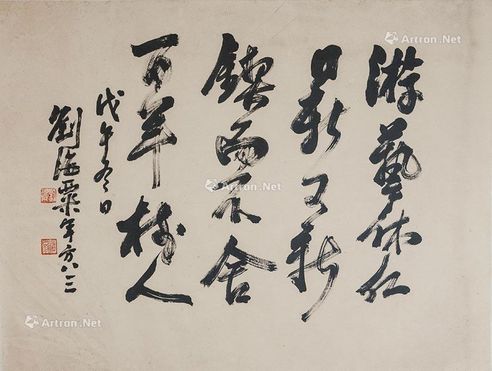 游艺休仁
日新又新
锲而不舍
百年树人
戊午冬日
刘海粟年方八三
Artron.Net
Artron.Net
Artron.Net